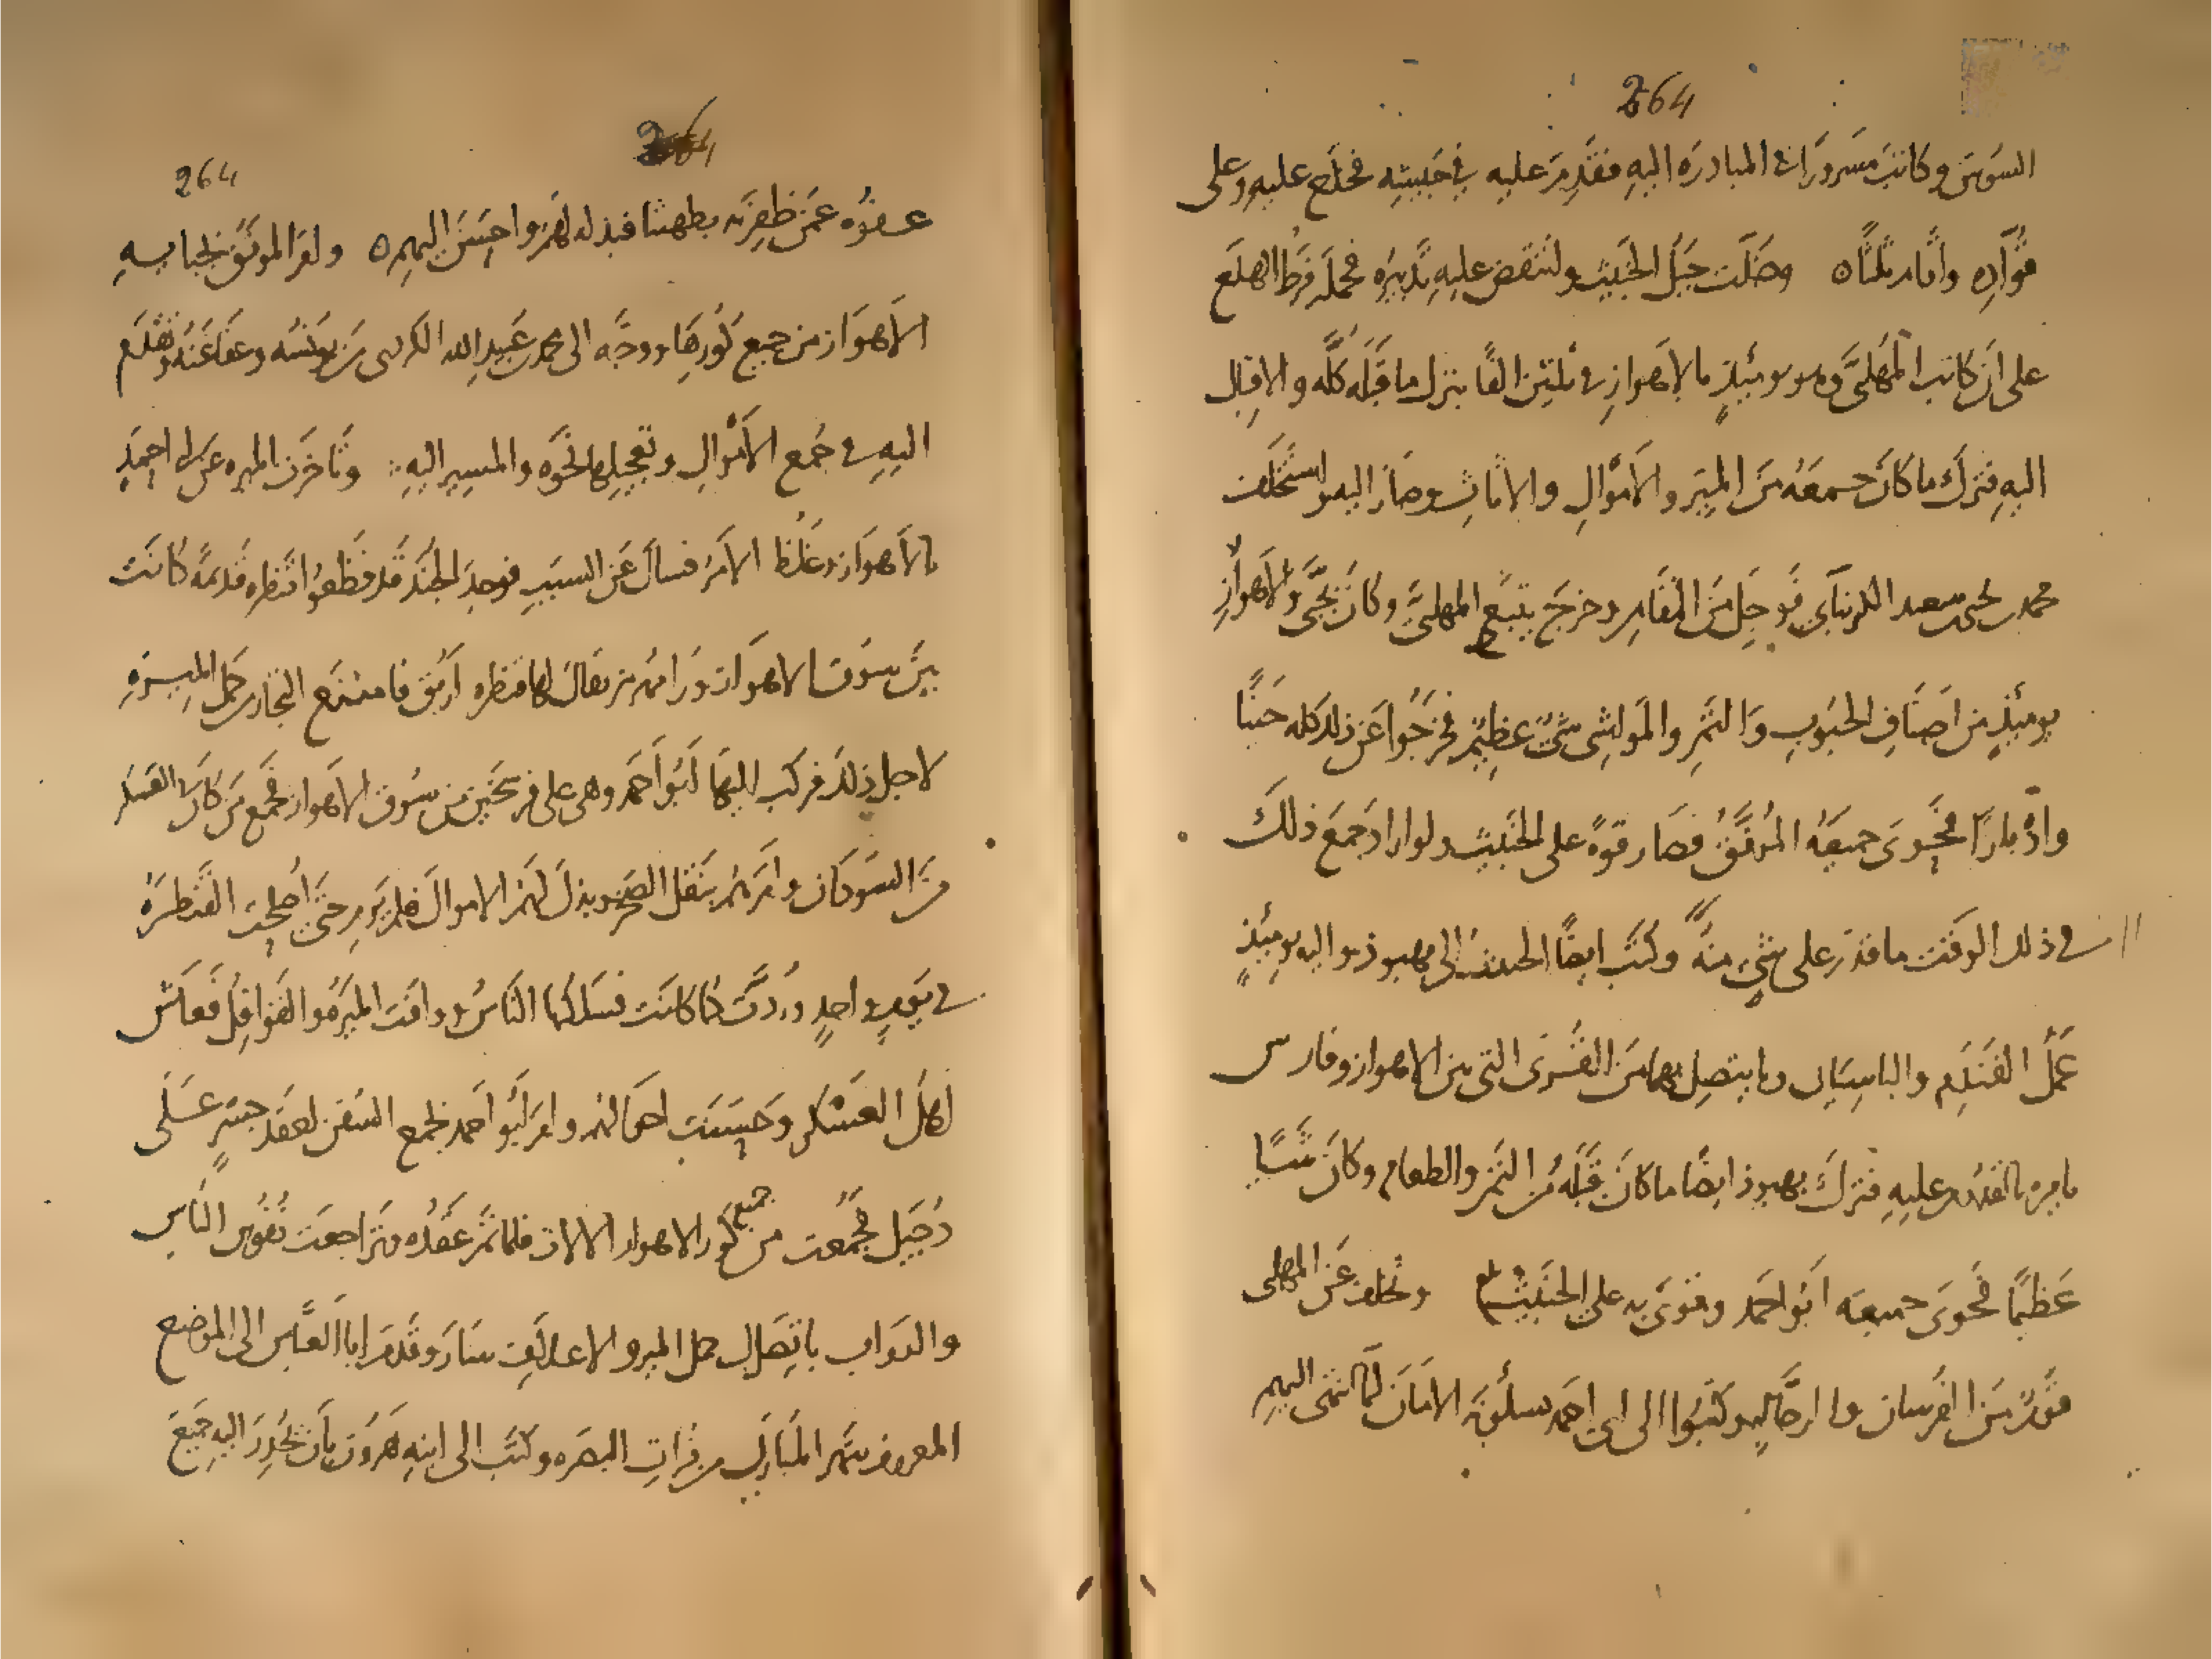 264
السوس وكانت مسرورا في المبادرة اليه فقدم عليه في جيشه فخلع عليه وعلى
قواده واقام ثلثا وضلت حيل الخبيث وانتقض عليه تدبيره فحمله فرط الهلع
على ان كاتب المهلبي وهو يومئذ بالاهواز في ثلثين الفا بترك ما قبله كله والاقبال
اليه فترك ما كان جمعه من المير والاموال والاثاث وصار اليه واستخلف
محمد بن يحيى بن سعيد الكرنبائي فوجل من المقام وخرج يتبع المهلبي وكان بجبى والاهواز
يومئذ من اصناف الحبوب والتمر والمواشي شيء عظيم فخرجوا عن ذلك كله جبنا
وادبارا فحوى جميعه الموفق فصار قوة على الخبيث ولو اراد جمع ذلك
في ذلك الوقت ما قدر على شيء منه وكتب ايضا الخبيث الى بهبوذ واليه يومئذ
عمل الفندم والباسيان وما يتصل بهما من القرى التي بين الاهواز وفارس
يامره بالقدوم عليه فترك بهبوذ ايضا ما كان قبله من التمر والطعام وكان شيا
عظيما فحوى جميعه ابو احمد وقوى به على الخبيث وتخلف عن المهلبي
قوم من الفرسان والرجالة وكتبوا الى ابي احمد يسلونه الامان لما انتهى اليهم
264
264
عفوه عمن ظفر به بطهثا فبذله لهم واحسن اليهم ولقر الموفق لجبايه
الاهواز من جميع كورها ووجه الى محمد بن عبيد الله الكردي من يونسه وعفا عنه وتقدم
اليه في جمع الاموال وتعجيلها نحوه والمسير اليه وتاخرت الميره عن ابي احمد
بالاهواز وغلظ الامر فسال عن السبب فوجد الجند قد قطعوا قنطره قديمه كانت
بين سوق الاهواز ورامهرمز يقال لها قنطره اربق فامتنع التجار من حمل الميره
لاجل ذلك فركب اليها ابو احمد وهي على فرسخين من سوق الاهواز فجمع من كان في العسكر
من السودان وامرهم بنقل الصخر وبذل لهم الاموال فلم يرم حتى اصلحت القنطره
في يوم واحد وردت كما كانت فسلكها الناس ووافت الميره والقوافل فعاش
اهل العسكر وحسنت احوالهم وامر ابو احمد بجمع السفن لعقد جسر على
دجيل فجمعت من جميع كور الاهواز الالات فلما تم عقده وتراجعت نفوس الناس
والدواب باتصال حمل المير والاعلاف سار وقدم ابا العباس الى الموضع
المعروف بنهر المبارك من فرات البصره وكتب الى ابنه هرون بان يحدر اليه جميع